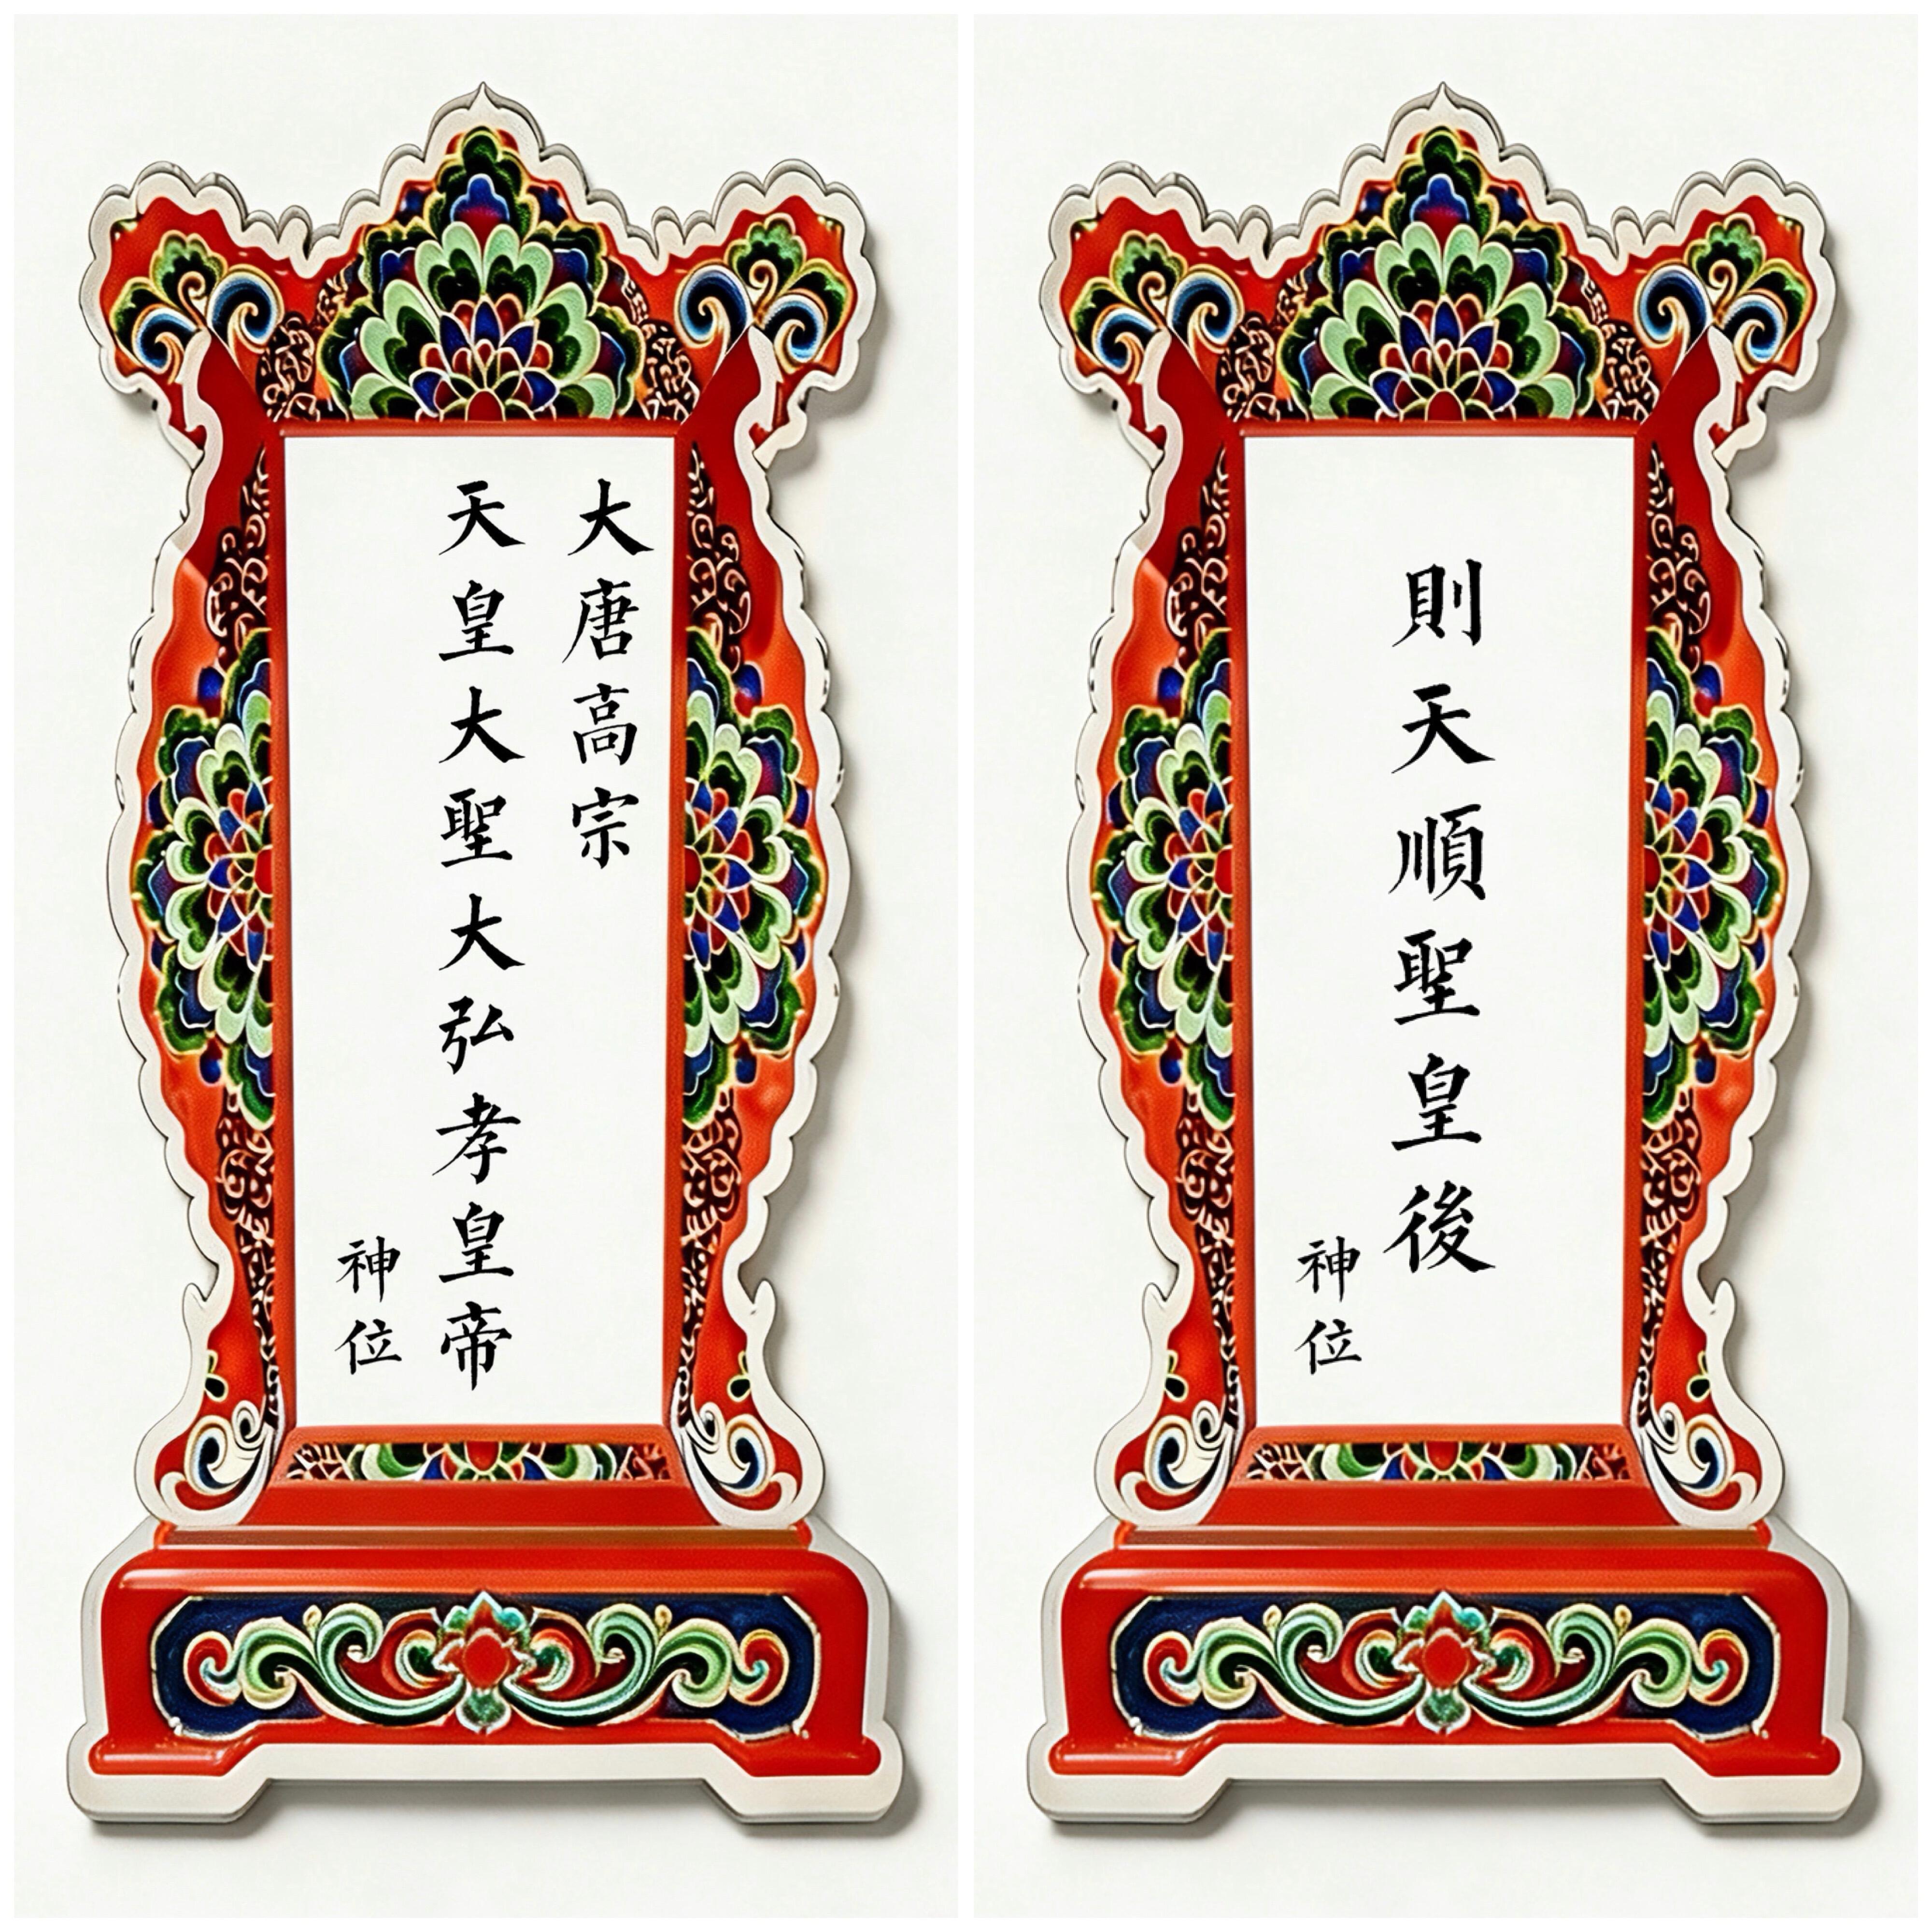 大唐高宗
天皇大聖大弘孝皇帝
神位
則天順聖皇後
神位